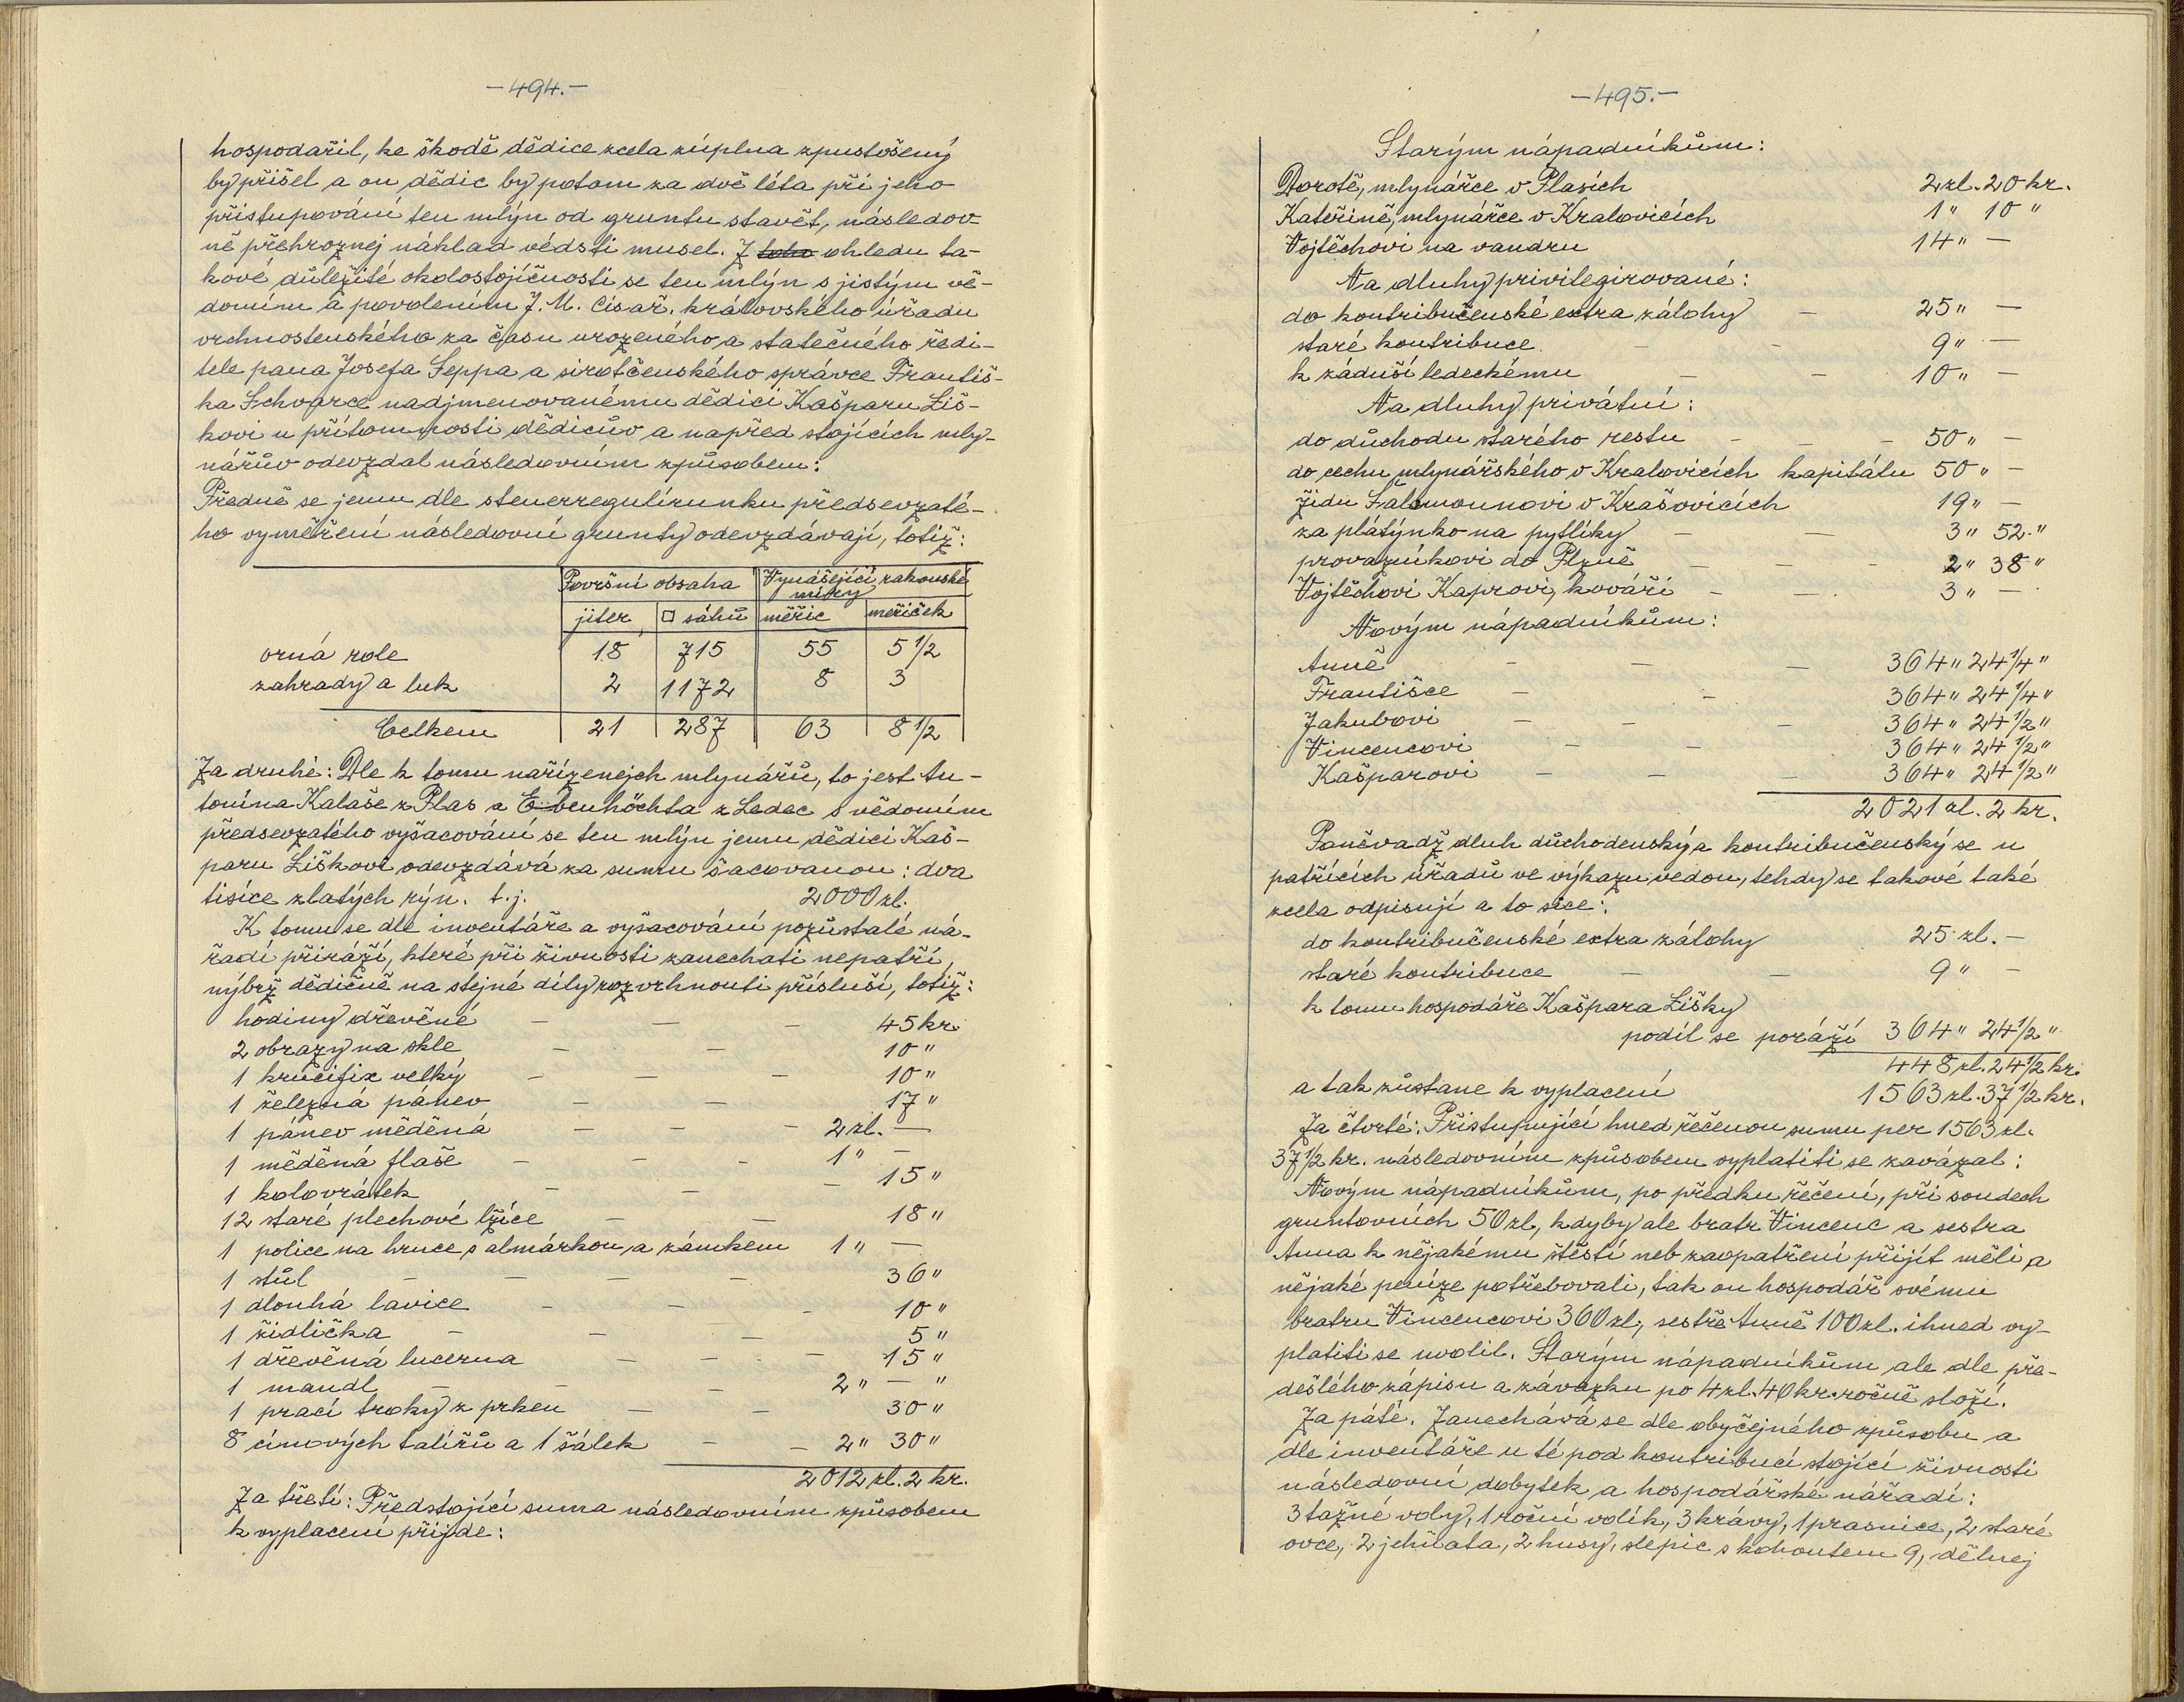 —494.—
hospodařil, ke škodě dědice zcela zúplna zpustošený
by přišel a on dědic by potom za dvě léta při jeho
přistupování ten mlýn od gruntu stavět, následov-
ně přehroznej náklad védsti musel. Z toho ohledu ta-
kové důležité okolostojíčnosti se ten mlýn s jistým vě-
domím a povolením J. M. císař. královského úřadu
vrchnostenského za času urozeného a statečného ředi-
tele pana Josefa Seppa a sirotčenského správce Františ-
ka Schvarce nadjmenovanému dědici Kašparu Liš-
kovi u přítomnosti dědicův a napřed stojících mly-
nářův odevzdal následovním způsobem:
Předně se jemu dle steuerregulírunku předsevzaté-
ho vyměření následovní grunty odevzdávají, totiž:
Površní obsaha Vynášející rakouské
míry
jiter □ sáhů měřic meřiček
orná role 18 715 55 5 1/2
zahrady a luk 2 1172 8 3
Celkem 21 287 63 8 1/2
Za druhé: Dle k tomu nařízenejch mlynářů, to jest An-
tonína Kalaše z Plas a Ebenhöchta z Ledec s vědomím
předsevzatého vyšacování se ten mlýn jemu dědici Kaš-
paru Liškovi odevzdává za sumu šacovanou: dva
tisíce zlatých rýn. t.j. 2000 zl.
K tomu se dle inventáře a vyšacování pozůstalé ná-
řadí přiráží, které při živnosti zanechati nepatří,
nýbrž dědičně na stejné díly rozvrhnouti přísluší, totiž:
hodiny dřevěné — — — 45 kr.
2 obrazy na skle — — 10 "
1 krucifix velký — — — 10 "
1 železná pánev — — — 17 "
1 pánev měděná — — — 2 zl. —
1 měděná flaše — — — 1 " —
1 kolovrátek — — — 15 "
12 staré plechové lžíce — — 18 "
1 police na hrnce s almárkou a zámkem 1 " —
1 stůl — — — — 36 "
1 dlouhá lavice — — — 10 "
1 židlička — — — 5 "
1 dřevěná lucerna — — — 15 "
1 mandl — — — 2 " — "
1 prací troky z prken — — 30 "
8 cínových talířů a 1 šálek — — 2 " 30 "
2012 zl. 2 kr.
Za třetí: Předstojící suma následovním způsobem
k vyplacení přijde:
—495.—
Starým nápadníkům:
Dorotě, mlynářce v Plasích 2 zl. 20 kr.
Kateřině, mlynářce v Kralovicích 1 " 10 "
Vojtěchovi na vandru 14 " —
Na dluhy privilegirované:
do kontribučenské extra zálohy — 25 " —
staré kontribuce — — 9 " —
k záduší ledeckému — — 10 " —
Na dluhy privátní:
do důchodu starého restu — — — 50 " —
do cechu mlynářského v Kralovicích kapitálu 50 " —
židu Salomounovi v Krašovicích 19 " —
za plátýnko na pytlíky — — 3 " 52 "
provazníkovi do Plzně — — — 2 " 38 "
Vojtěchovi Kaprovi, kováři — — 3 " —
Novým nápadníkům:
Anně — — — 364 " 24 1/4 "
Františce — — 364 " 24 1/4 "
Jakubovi — — — 364 " 24 1/2 "
Vincencovi — — 364 " 24 1/2 "
Kašparovi — — — 364 " 24 1/2 "
2021 zl. 2 kr.
Poněvadž dluh důchodenský a kontribučenský se u
patřících úřadů ve výkazu vedou, tehdy se takové také
zcela odpisují a to sice:
do kontribučenské extra zálohy 25 zl. —
staré kontribuce — — 9 " —
k tomu hospodáře Kašpara Lišky
podíl se poráží 364 " 24 1/2 "
448 zl. 24 1/2 kr.
a tak zůstane k vyplacení 1563 zl. 37 1/2 kr.
Za čtvrté: Přistupující hned řečenou sumu per 1563 zl.
37 1/2 kr. následovním způsobem vyplatiti se zavázal:
Novým nápadníkům, po předku řečení, při soudech
gruntovních 50 zl., kdyby ale bratr Vincenc a sestra
Anna k nějakému štěstí neb zaopatření přijít měli a
nějaké peníze potřebovali, tak on hospodář svému
bratru Vincencovi 360 zl., sestře Anně 100 zl. ihned vy-
platiti se uvolil. Starým nápadníkům ale dle pře-
dešlého zápisu a závazku po 4 zl. 40 kr. ročně složí.
Za páté. Zanechává se dle obyčejného způsobu a
dle inventáře u té pod kontribucí stojící živnosti
následovní dobytek a hospodářské nářadí:
3 tažné voly, 1 roční volík, 3 krávy, 1 prasnice, 2 staré
ovce, 2 jehňata, 2 husy, slepic s kohoutem 9, dělnej